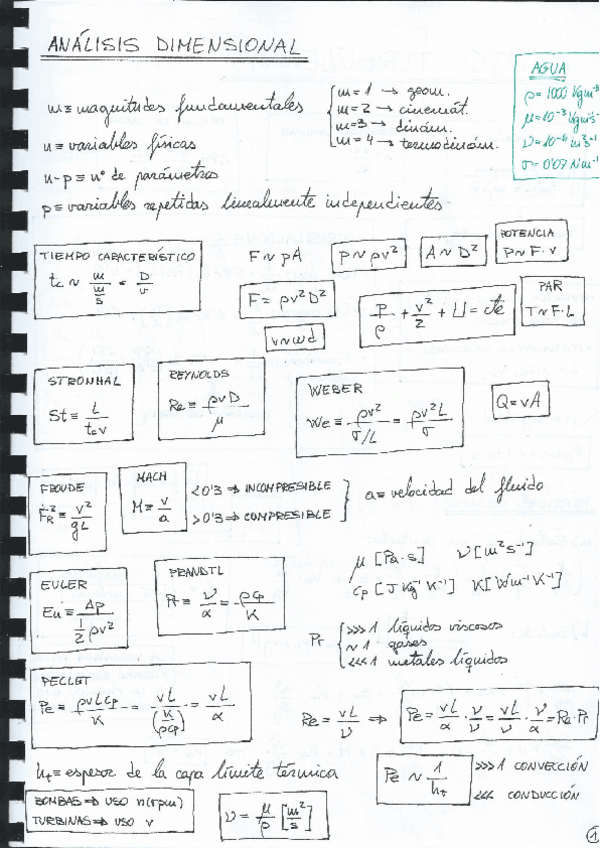 ANÁLISIS DIMENSIONAL
AGUA
ρ = 1000 Kgm⁻³
μ = 10⁻³ Kgm⁻¹s⁻¹
ν = 10⁻⁶ m²s⁻¹
σ = 0'07 Nm⁻¹
m ≡ magnitudes fundamentales
m = 1 → geom.
m = 2 → cinemát.
m = 3 → dinám.
m = 4 → termodinám.
n ≡ variables físicas
n-p ≡ nº de parámetros
p ≡ variables repetidas linealmente independientes
TIEMPO CARACTERÍSTICO
tc ~ m/(m/s) = D/v
F ~ pA
p ~ ρv²
A ~ D²
POTENCIA
P ~ F · v
F = ρv²D²
P/ρ + v²/2 + U = cte
PAR
T ~ F·L
v ~ ωd
STRONHAL
St ≡ L/(tc v)
REYNOLDS
Re ≡ ρvD/μ
WEBER
We ≡ ρv²/(σ/L) = ρv²L/σ
Q = vA
FROUDE
Fr² ≡ v²/gL
MACH
M ≡ v/a
< 0'3 ⇒ INCOMPRESIBLE
> 0'3 ⇒ COMPRESIBLE
a ≡ velocidad del fluido
EULER
Eu ≡ Δp/(½ρv²)
PRANDTL
Pr ≡ ν/α = ρcp/K
μ [Pa·s] ν [m²s⁻¹]
cp [J Kg⁻¹ K⁻¹] K [W m⁻¹ K⁻¹]
Pr
>>> 1 líquidos viscosos
~ 1 gases
<<< 1 metales líquidos
PECLET
Pe = ρvLcp/K = vL/(K/ρcp) = vL/α
Re = vL/ν ⇒ Pe = vL/α · ν/ν = vL/ν · ν/α = Re·Pr
ht ≡ espesor de la capa límite térmica
Pe ~ 1/ht
>>> 1 CONVECCIÓN
<<< CONDUCCIÓN
BOMBAS ⇒ USO n(rpm)
TURBINAS ⇒ USO v
ν = μ/ρ [m²/s]
1